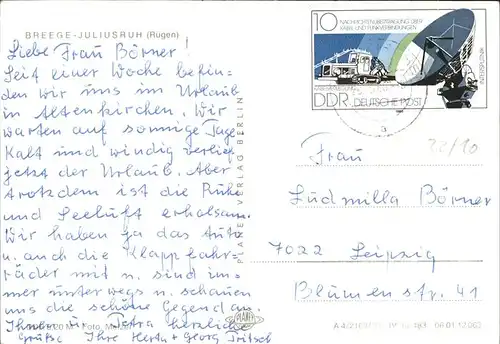 BREEGE-JULIUSRUH (Rügen)
Liebe Frau Börner!
Seit einer Woche befin-
den wir uns im Urlaub
in Altenkirchen. Wir
warten auf sonnige Tage.
Kalt und windig verlief
jetzt der Urlaub. Aber
trotzdem ist die Ruhe
und Seeluft erholsam.
Wir haben ja das Auto
u. auch die Klappfahr-
räder mit u. sind im-
mer unterwegs u. schauen
uns die schöne Gegend an.
Ihnen u. Petra herzliche
Grüße Ihre Herta u. Georg Fritsch
Foto
PLANET VERLAG BERLIN
PLANET
10 NACHRICHTENÜBERTRAGUNG ÜBER
KABEL UND FUNKVERBINDUNGEN
INTERSPUTNIK
DDR DEUTSCHE POST
a
22/10
Frau
Ludmilla Börner
7022 Leipzig
Blumenstr. 41